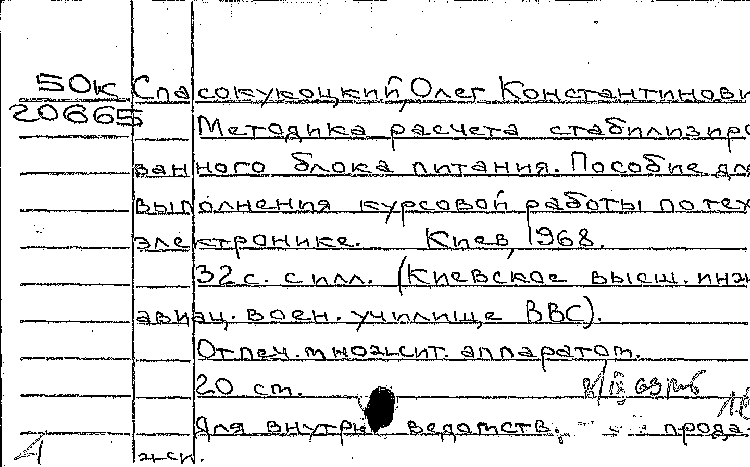 50к Спасокукоцкий, Олег Константинови
20665
Методика расчета стабилизиро
ванного блока питания. Пособие для
выполнения курсовой работы по тех
электронике. Киев, 1968.
32 с. с илл. (Киевское высш. инж
авиац. воен. училище ВВС).
Отпеч. множит. аппаратом.
20 см.
Для внутри ведомств. прода
жи.